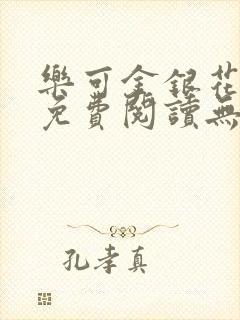 樂可金銀花
免費閱讀無
孔孝真